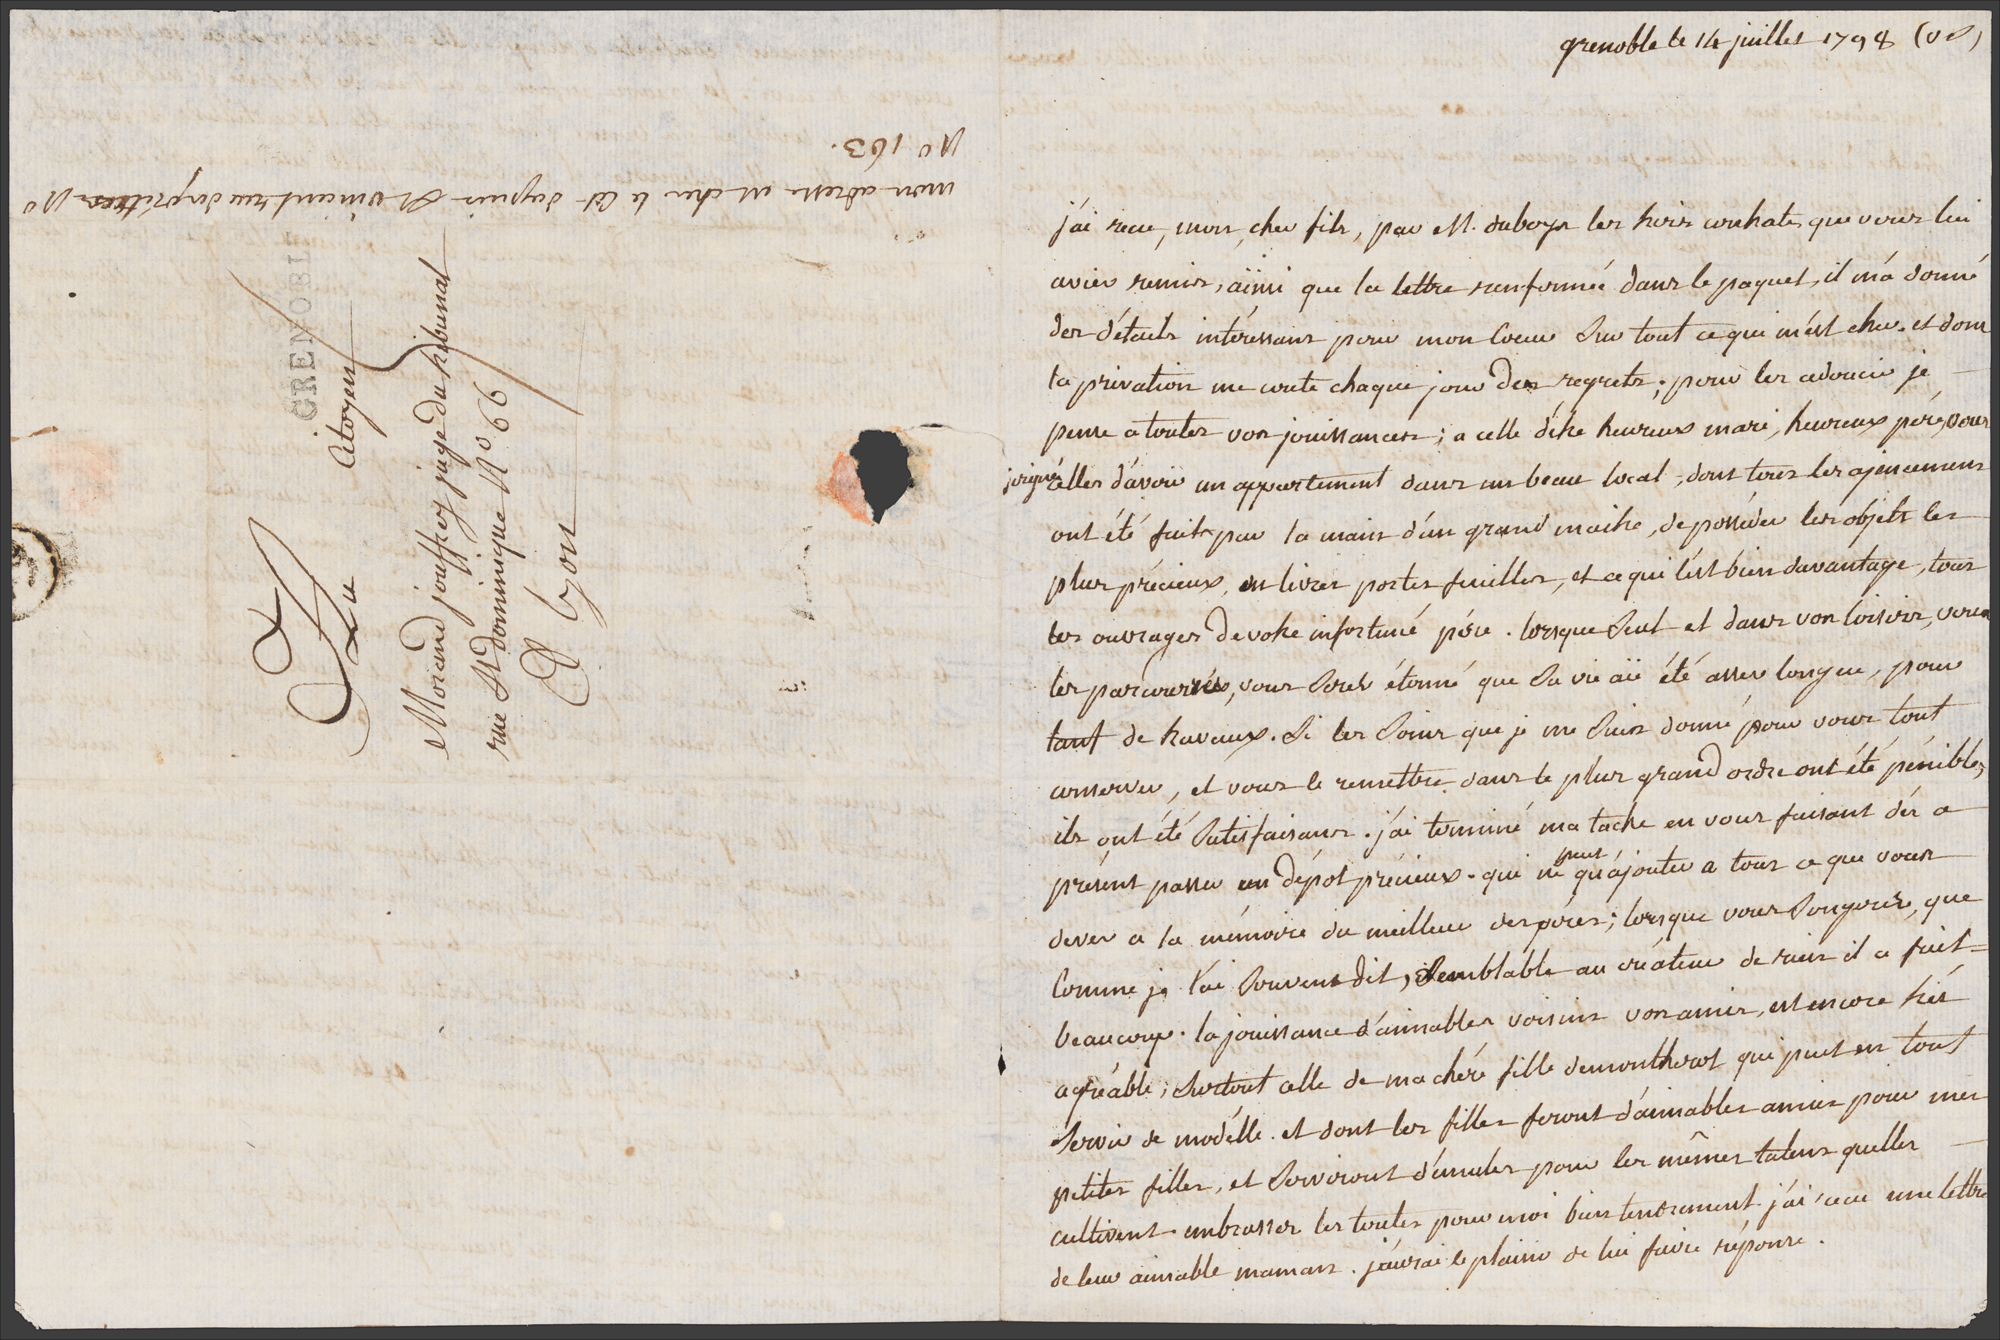 mon adresse est chez le Cit dupuis St vincent rue des prêtres No
No 163.
GRENOBL
Au
Citoyen
Morand jouffrey juge du tribunal
rue St dominique No 66
A Lyon
grenoble le 14 juillet 1798 (v s)
j'ai recu, mon cher fils, par M. duboys les trois que vous lui
aviés remis, aïnsi que la lettre ranfermée dans le paquet, il m'a donné
des détails intéressans pour mon Coeur Sur tout ce qui m'est cher. et dont
la privation me coute chaque jour des regrets; pour les adoucir je
pense a toutes vos jouissances; a celle d'étre heureux mari, heureux pére, vous
joigné celles d'avoir un appartement dans un beau local, dont tous les ajencemens
ont été faits par la main d'un grand maitre, de posséder les objets les
plus précieux, en livres portes feuilles, et ce qui l'est bien davantage, tous
les ouvrages de votre infortuné pére. lorsque Seul et dans vos loisirs, vous
les parcourrés, vous Serés étonné que Sa vie aïe été assés longue, pour
tant de travaux. Si les Soins que je me Suis donné pour vous tout
conserver, et vous le remettre dans le plus grand ordre ont été pénibles,
ils ont été Satisfaisans. j'ai terminé ma tache en vous faisant dés a
présent passer un dépot précieux. qui ne peut qu'ajouter a tous ce que vous
devés a la mémoire du meilleur des péres; lorsque vous Songerés, que
Comme je l'ai Souvent dit, Semblable au créateur de rien il a fait
beaucoup. la jouissance d'aimables voisins vos amis, est encore trés
agréable; Surtout celle de ma chére fille demontherot qui peut en tout
Servir de modélle. et dont les filles feront d'aimables amies pour mes
petites filles, et Serviront d'émules pour les mêmes talens quelles
cultivent. embrasser les toutes pour moi bien tendrement. j'ai recu une lettre
de leur aimable maman. j'aurai le plaisir de lui faire réponse.